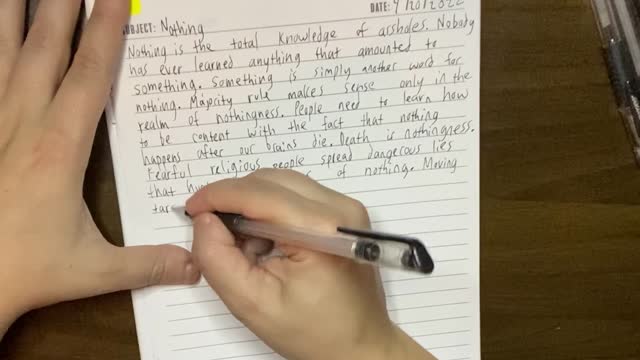 SUBJECT: Nothing
DATE: 9/20/2020
Nothing is the total knowledge of assholes. Nobody
has ever learned anything that amounted to
something. Something is simply another word for
nothing. Majority rule makes sense only in the
realm of nothingness. People need to learn how
to be content with the fact that nothing
happens after our brains die. Death is nothingness.
Fearful religious people spread dangerous lies
that of nothing. Moving